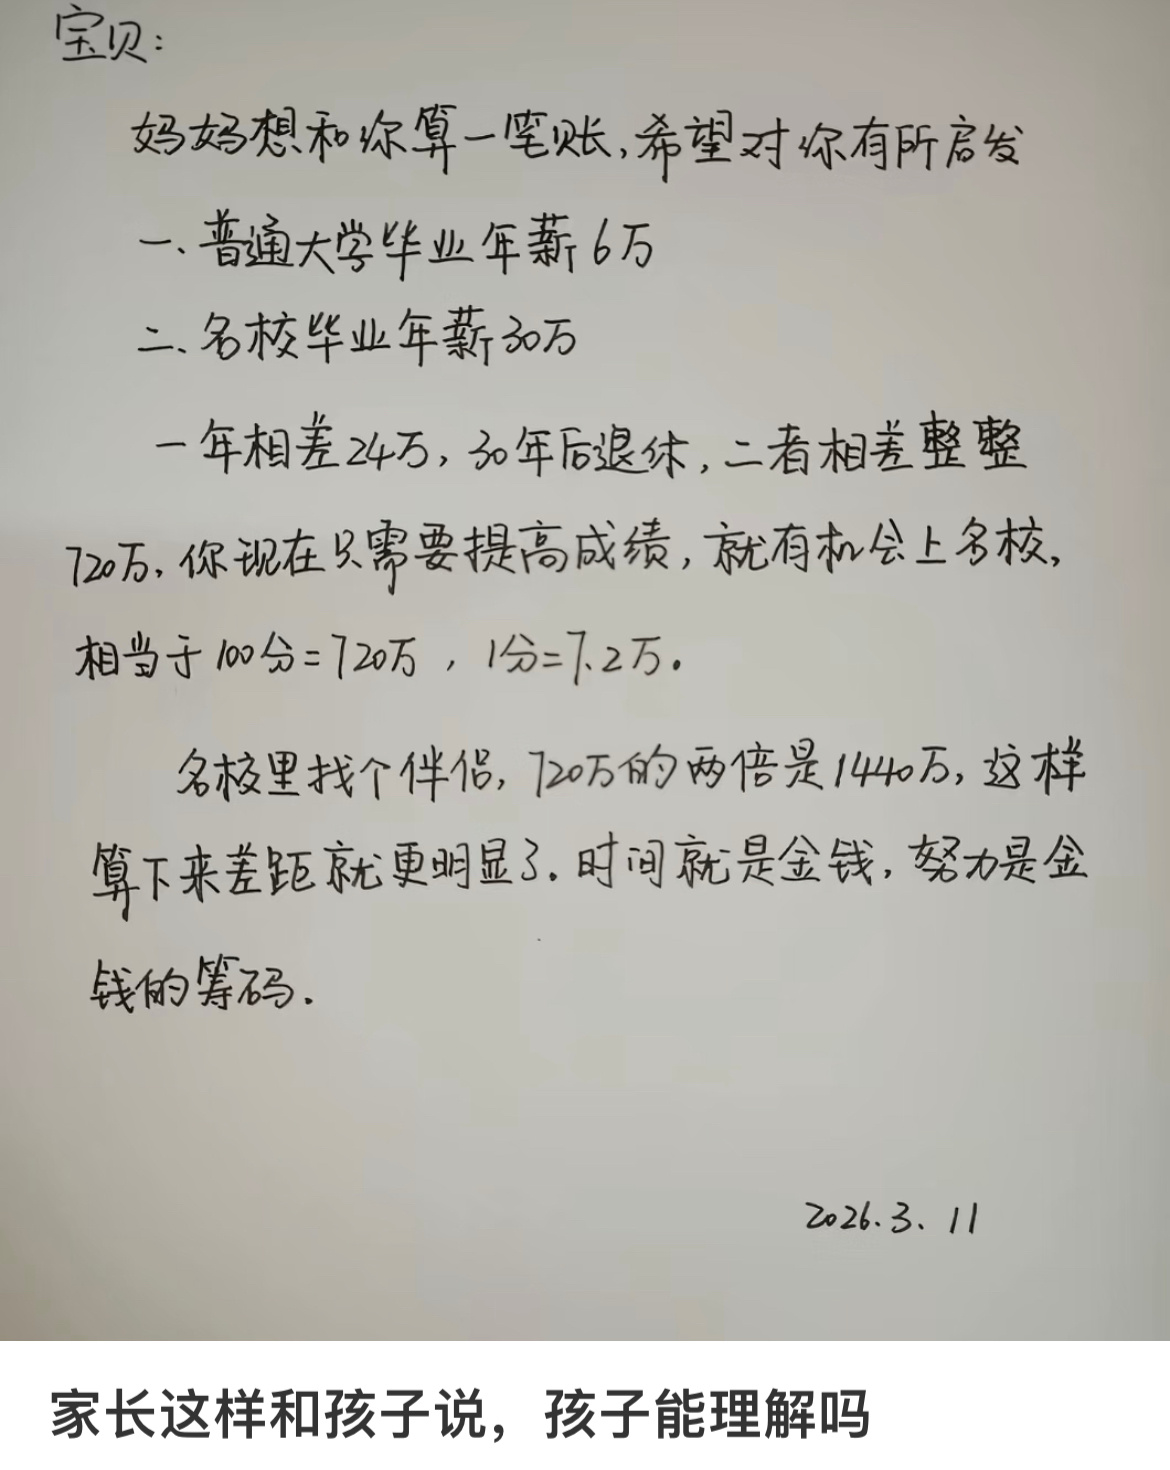 宝贝：
妈妈想和你算一笔账，希望对你有所启发
一、普通大学毕业年薪6万
二、名校毕业年薪30万
一年相差24万，30年后退休，二者相差整整
720万，你现在只需要提高成绩，就有机会上名校，
相当于100分=720万，1分=7.2万。
名校里找个伴侣，720万的两倍是1440万，这样
算下来差距就更明显了．时间就是金钱，努力是金
钱的筹码．
2026.3.11
家长这样和孩子说，孩子能理解吗